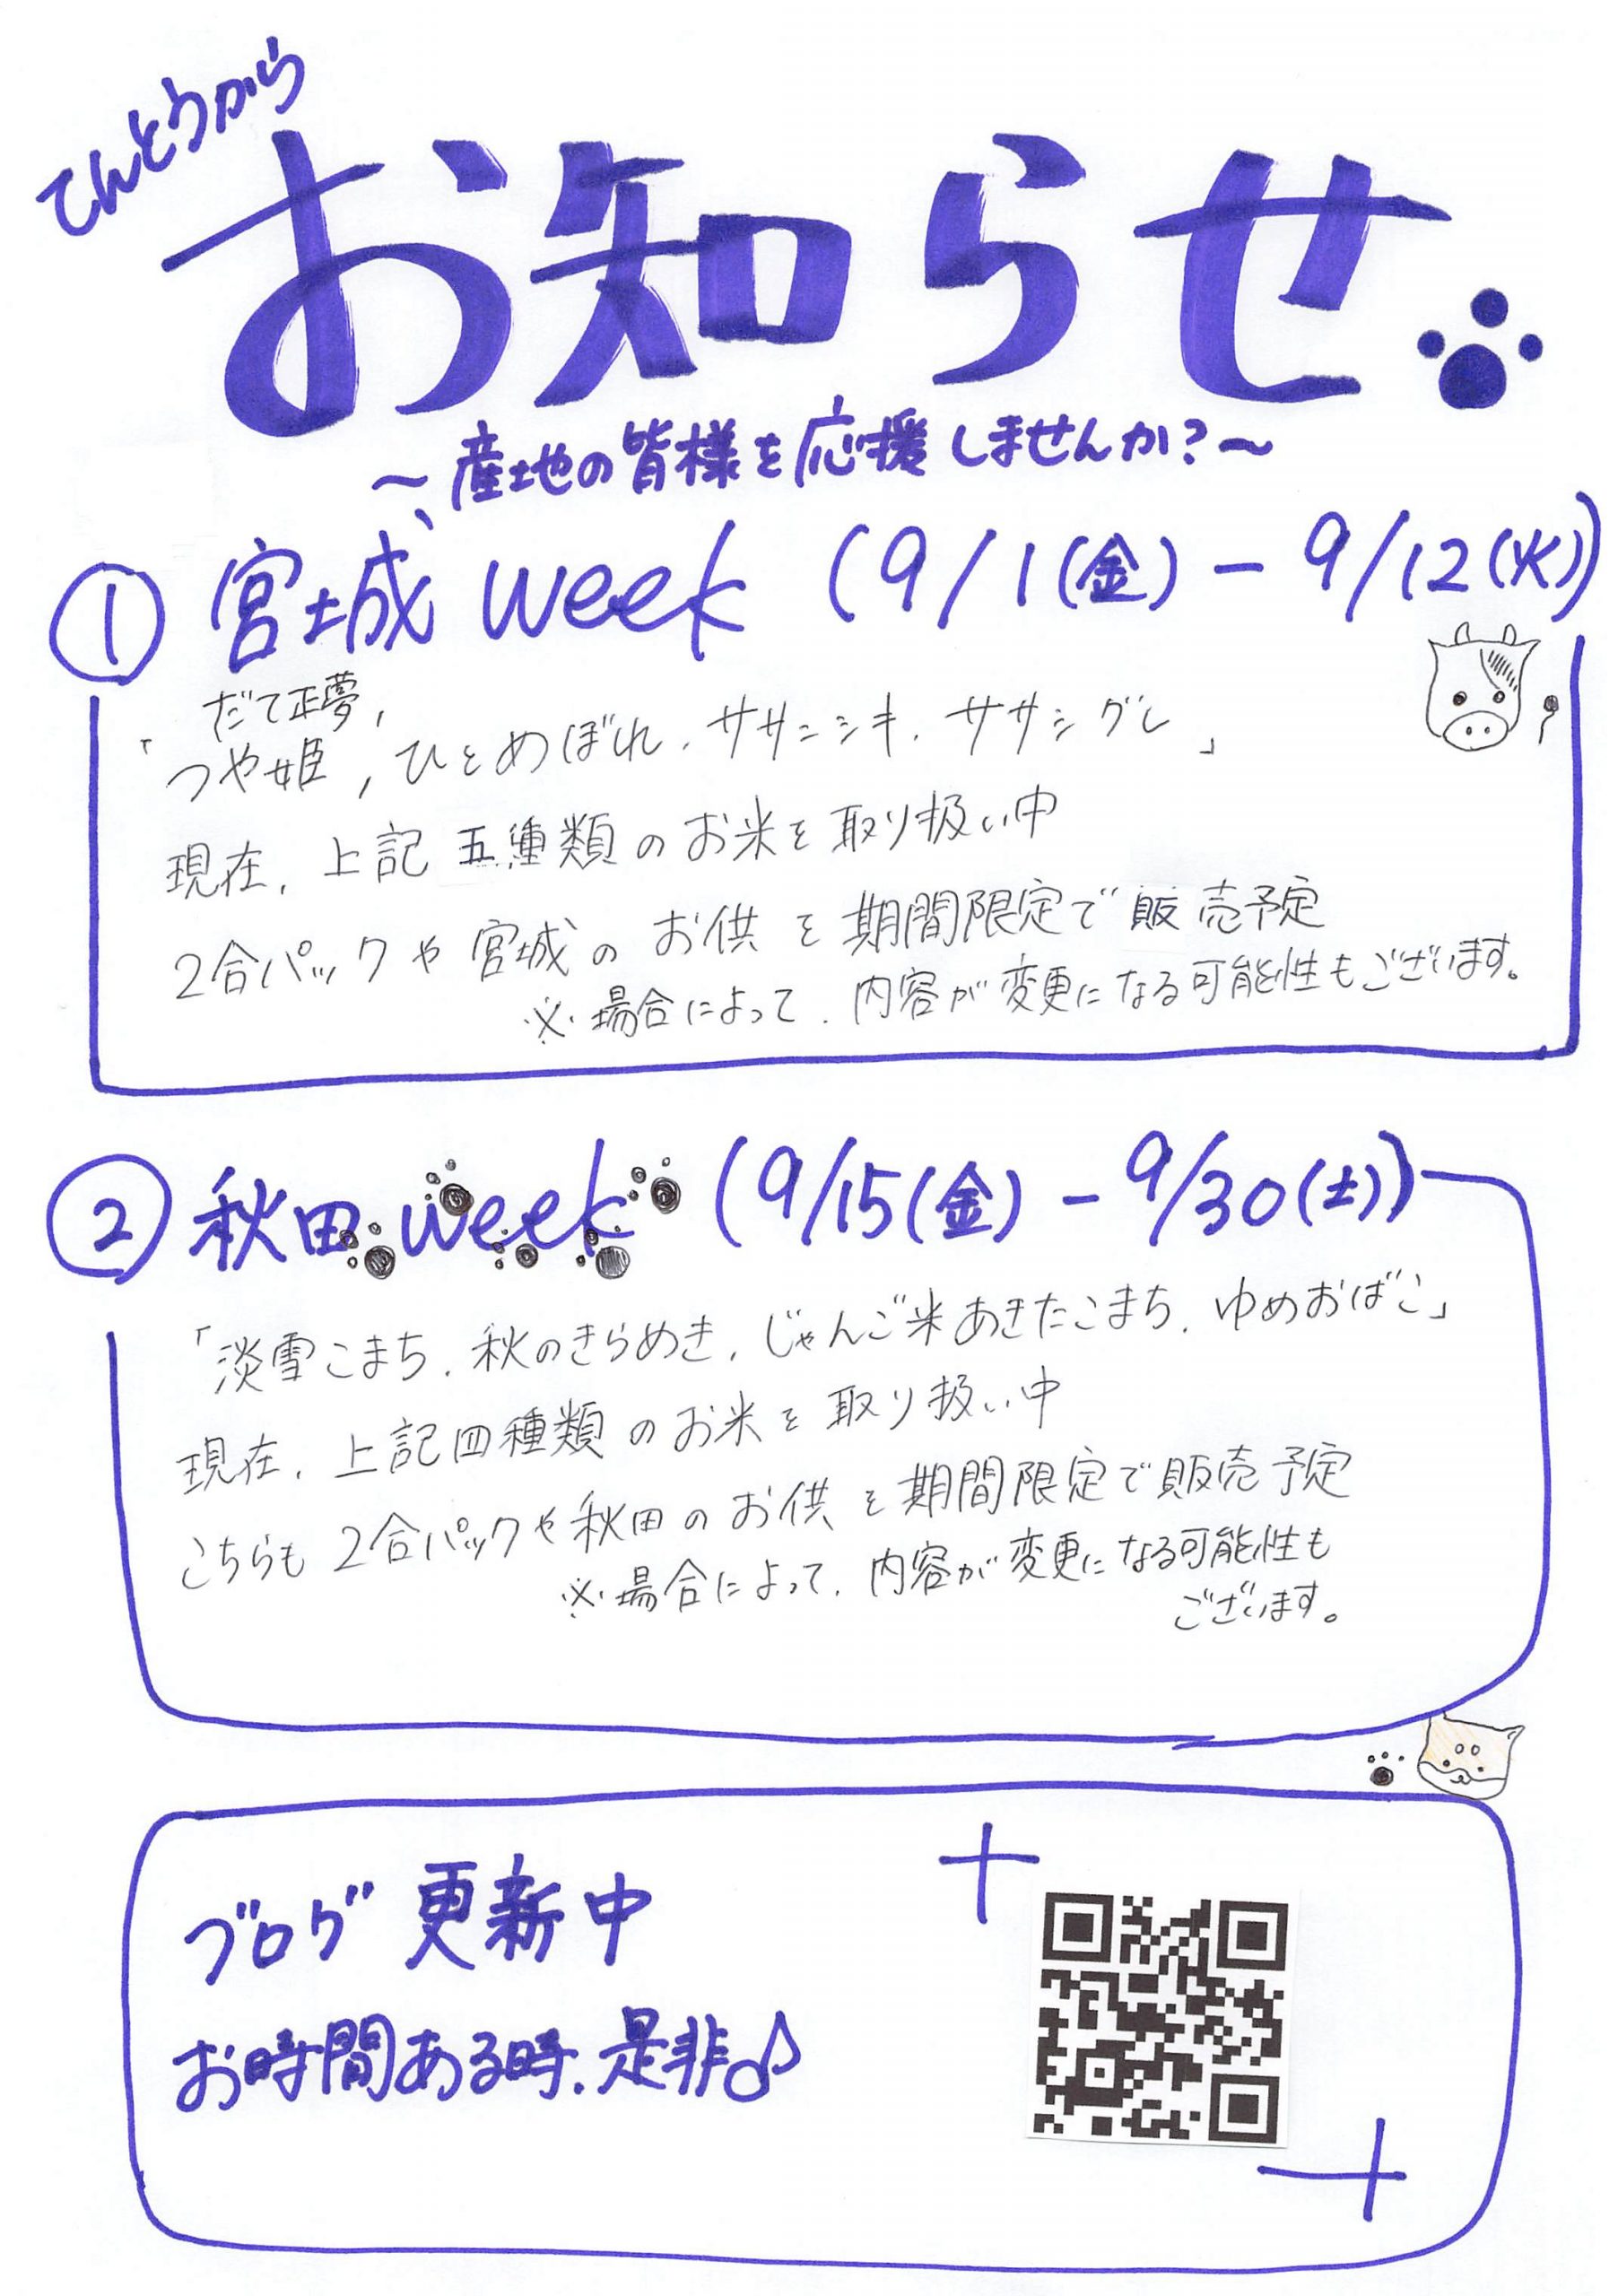 てんとうから
お知らせ
～産地の皆様を応援しませんか？～
① 宮城 week (9/1(金) - 9/12(火))
だて正夢,
「つや姫, ひとめぼれ、ササニシキ、ササシグレ」
現在、上記 五種類のお米を取り扱い中
2合パックや宮城のお供を期間限定で販売予定
※場合によって、内容が変更になる可能性もございます。
② 秋田 week (9/15(金) - 9/30(土))
「淡雪こまち、秋のきらめき、じゃんご米あきたこまち、ゆめおばこ」
現在、上記四種類のお米を取り扱い中
こちらも2合パックや秋田のお供を期間限定で販売予定
※場合によって、内容が変更になる可能性も
ございます。
ブログ更新中
お時間ある時、是非♪